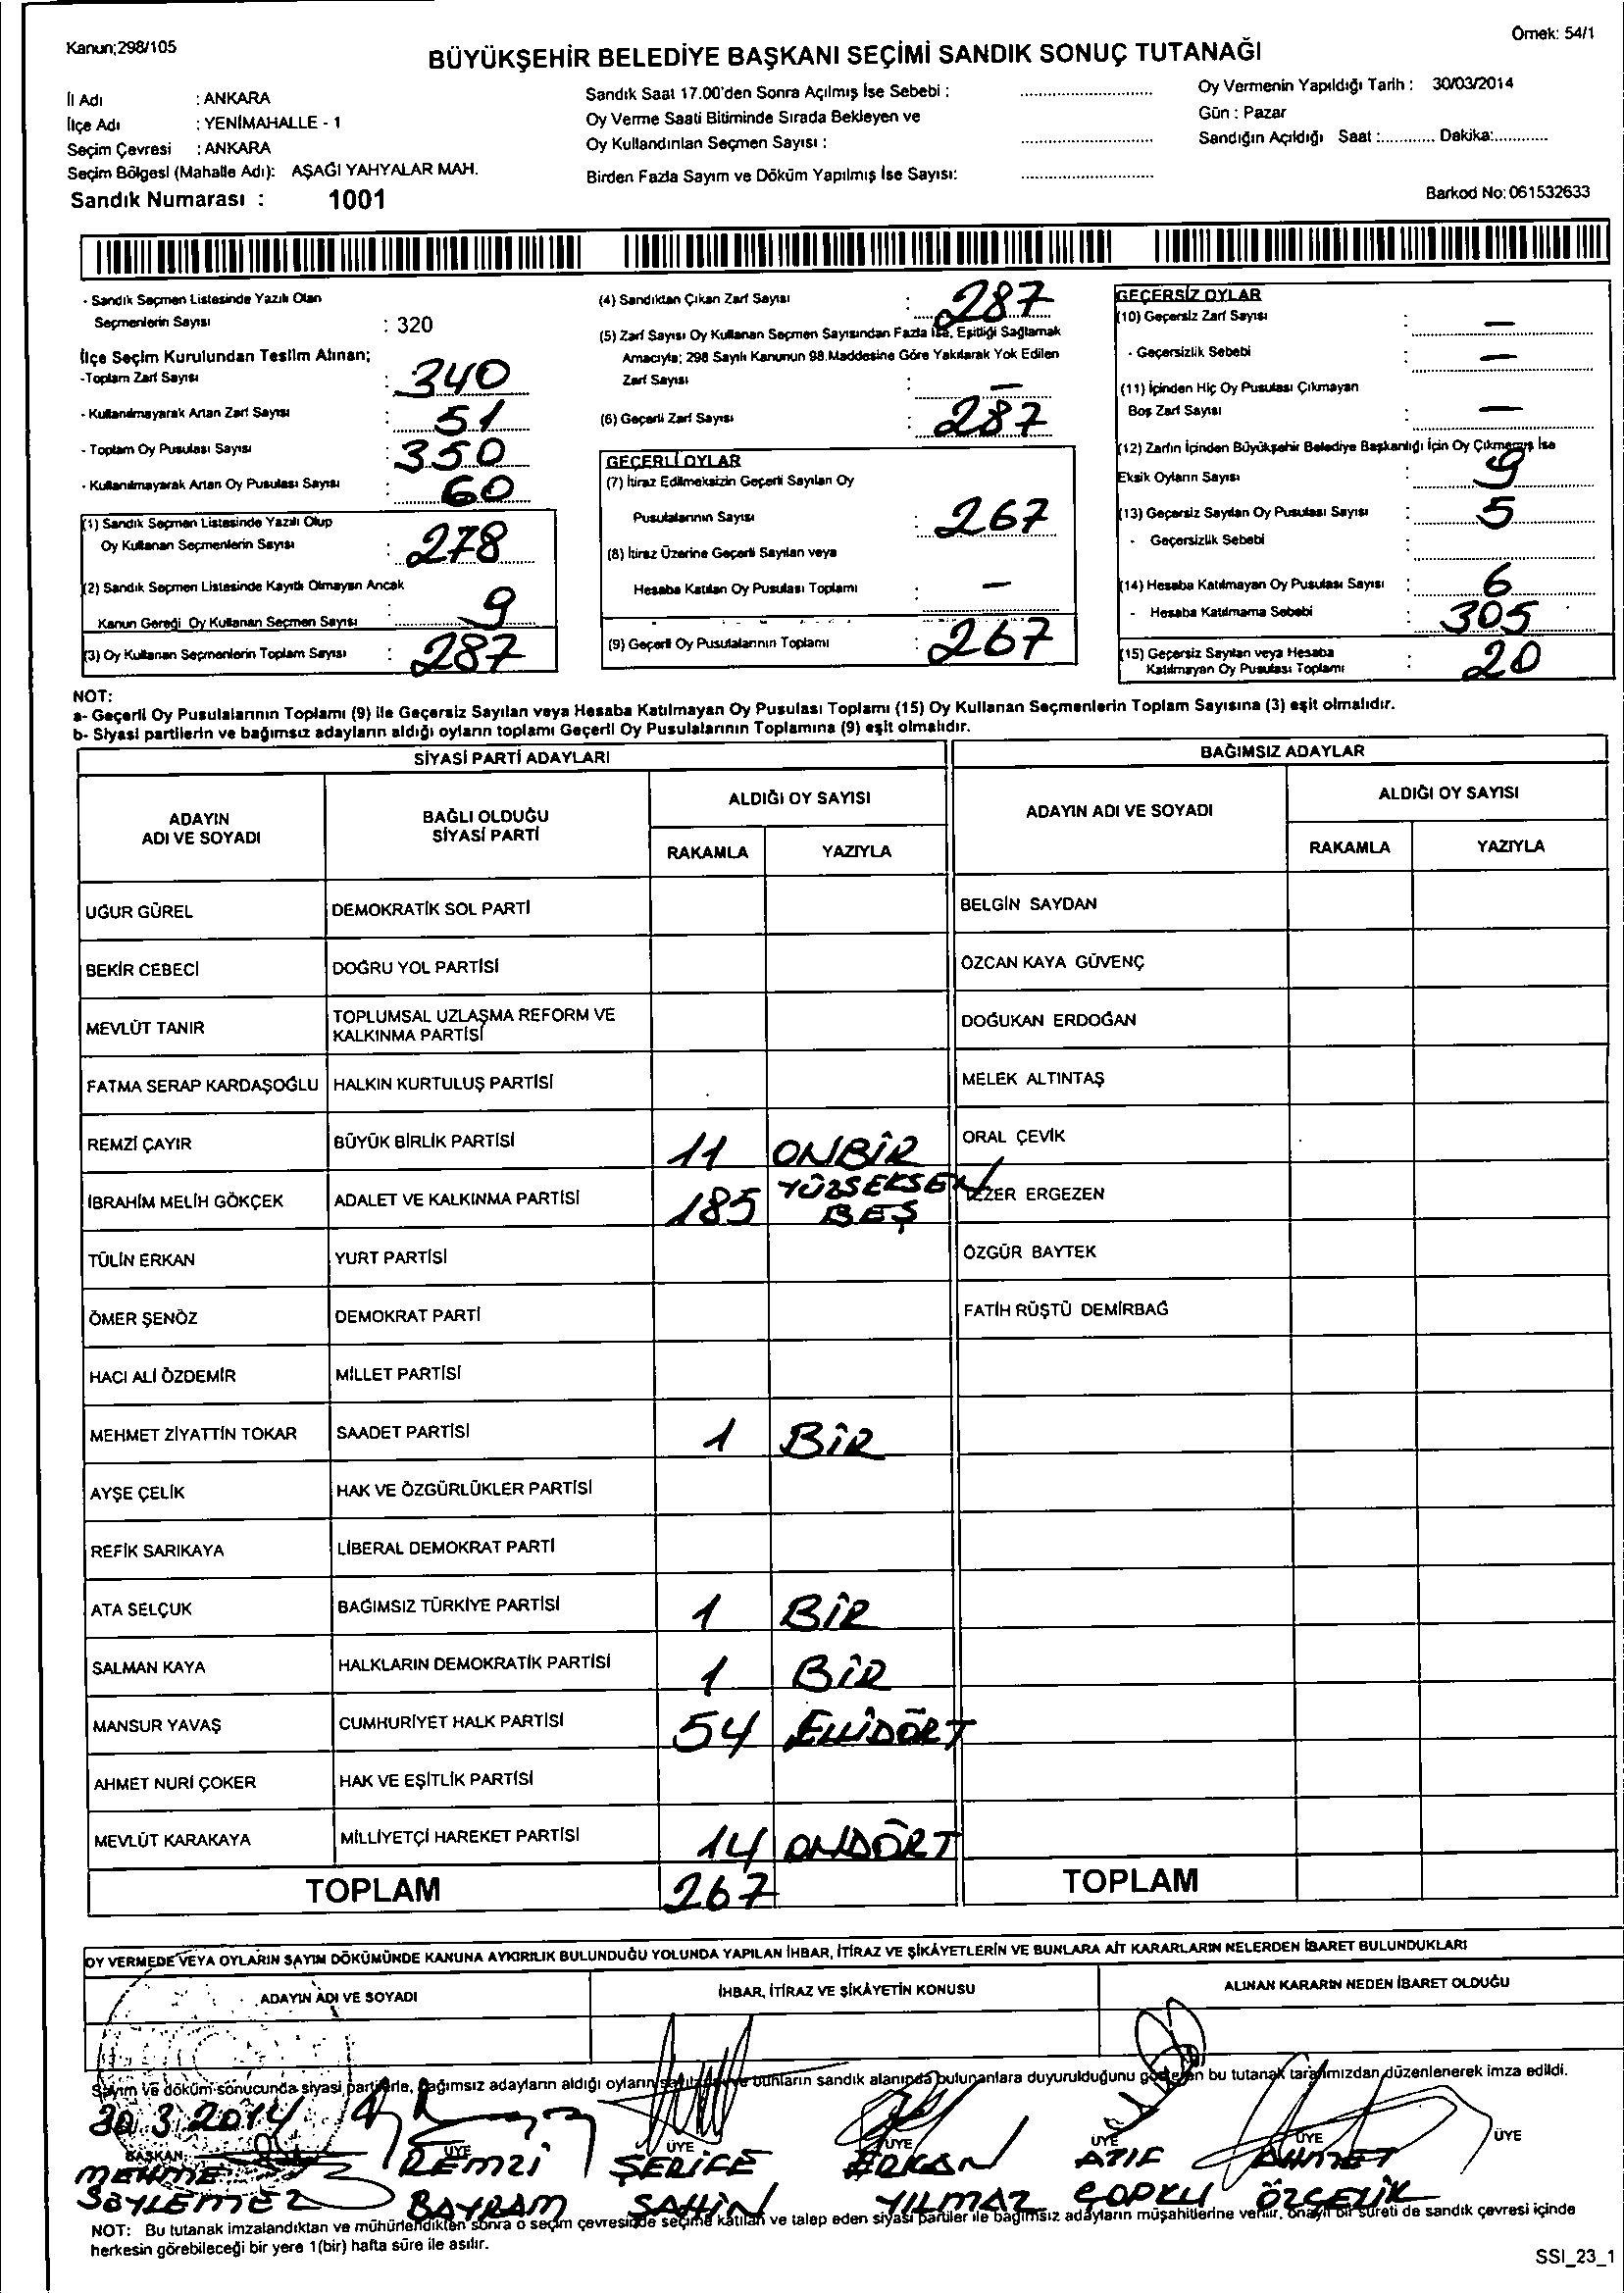 Kanun;298/105
Örnek: 54/1
BÜYÜKŞEHİR BELEDİYE BAŞKANI SEÇİMİ SANDIK SONUÇ TUTANAĞI
İl Adı : ANKARA
İlçe Adı : YENİMAHALLE - 1
Seçim Çevresi : ANKARA
Seçim Bölgesi (Mahalle Adı): AŞAĞI YAHYALAR MAH.
Sandık Numarası : 1001
Sandık Saat 17.00'den Sonra Açılmış İse Sebebi :
Oy Verme Saati Bitiminde Sırada Bekleyen ve
Oy Kullandırılan Seçmen Sayısı :
Birden Fazla Sayım ve Döküm Yapılmış İse Sayısı:
Oy Vermenin Yapıldığı Tarih : 30/03/2014
Gün : Pazar
Sandığın Açıldığı Saat :............ Dakika:............
Barkod No: 061532633
- Sandık Seçmen Listesinde Yazılı Olan
Seçmenlerin Sayısı : 320
İlçe Seçim Kurulundan Teslim Alınan;
-Toplam Zarf Sayısı : 340
- Kullanılmayarak Artan Zarf Sayısı : 51
- Toplam Oy Pusulası Sayısı : 350
- Kullanılmayarak Artan Oy Pusulası Sayısı : 60
(1) Sandık Seçmen Listesinde Yazılı Olup
Oy Kullanan Seçmenlerin Sayısı : 278
(2) Sandık Seçmen Listesinde Kayıtlı Olmayan Ancak
Kanun Gereği Oy Kullanan Seçmen Sayısı : 9
(3) Oy Kullanan Seçmenlerin Toplam Sayısı : 287
(4) Sandıktan Çıkan Zarf Sayısı : 287
(5) Zarf Sayısı Oy Kullanan Seçmen Sayısından Fazla İse, Eşitliği Sağlamak
Amacıyla; 298 Sayılı Kanunun 98.Maddesine Göre Yakılarak Yok Edilen
Zarf Sayısı : —
(6) Geçerli Zarf Sayısı : 287
GEÇERLİ OYLAR
(7) İtiraz Edilmeksizin Geçerli Sayılan Oy
Pusulalarının Sayısı : 267
(8) İtiraz Üzerine Geçerli Sayılan veya
Hesaba Katılan Oy Pusulası Toplamı : —
(9) Geçerli Oy Pusulalarının Toplamı : 267
GEÇERSİZ OYLAR
(10) Geçersiz Zarf Sayısı : —
- Geçersizlik Sebebi : —
(11) İçinden Hiç Oy Pusulası Çıkmayan
Boş Zarf Sayısı : —
(12) Zarfın İçinden Büyükşehir Belediye Başkanlığı İçin Oy Çıkmamış İse
Eksik Oyların Sayısı : 9
(13) Geçersiz Sayılan Oy Pusulası Sayısı : 5
- Geçersizlik Sebebi :
(14) Hesaba Katılmayan Oy Pusulası Sayısı : 6
- Hesaba Katılmama Sebebi : 305
(15) Geçersiz Sayılan veya Hesaba
Katılmayan Oy Pusulası Toplamı : 20
NOT:
a- Geçerli Oy Pusulalarının Toplamı (9) ile Geçersiz Sayılan veya Hesaba Katılmayan Oy Pusulası Toplamı (15) Oy Kullanan Seçmenlerin Toplam Sayısına (3) eşit olmalıdır.
b- Siyasi partilerin ve bağımsız adayların aldığı oyların toplamı Geçerli Oy Pusulalarının Toplamına (9) eşit olmalıdır.
SİYASİ PARTİ ADAYLARI
ADAYIN ADI VE SOYADI
BAĞLI OLDUĞU SİYASİ PARTİ
ALDIĞI OY SAYISI
RAKAMLA YAZIYLA
UĞUR GÜREL DEMOKRATİK SOL PARTİ
BEKİR CEBECİ DOĞRU YOL PARTİSİ
MEVLÜT TANIR TOPLUMSAL UZLAŞMA REFORM VE KALKINMA PARTİSİ
FATMA SERAP KARDAŞOĞLU HALKIN KURTULUŞ PARTİSİ
REMZİ ÇAYIR BÜYÜK BİRLİK PARTİSİ 11 ONBİR
İBRAHİM MELİH GÖKÇEK ADALET VE KALKINMA PARTİSİ 185 YÜZSEKSEN BEŞ
TÜLİN ERKAN YURT PARTİSİ
ÖMER ŞENÖZ DEMOKRAT PARTİ
HACI ALİ ÖZDEMİR MİLLET PARTİSİ
MEHMET ZİYATTİN TOKAR SAADET PARTİSİ 1 BİR
AYŞE ÇELİK HAK VE ÖZGÜRLÜKLER PARTİSİ
REFİK SARIKAYA LİBERAL DEMOKRAT PARTİ
ATA SELÇUK BAĞIMSIZ TÜRKİYE PARTİSİ 1 BİR
SALMAN KAYA HALKLARIN DEMOKRATİK PARTİSİ 1 BİR
MANSUR YAVAŞ CUMHURİYET HALK PARTİSİ 54 ELLİDÖRT
AHMET NURİ ÇOKER HAK VE EŞİTLİK PARTİSİ
MEVLÜT KARAKAYA MİLLİYETÇİ HAREKET PARTİSİ 14 ONDÖRT
TOPLAM 267
BAĞIMSIZ ADAYLAR
ADAYIN ADI VE SOYADI
ALDIĞI OY SAYISI
RAKAMLA YAZIYLA
BELGİN SAYDAN
ÖZCAN KAYA GÜVENÇ
DOĞUKAN ERDOĞAN
MELEK ALTINTAŞ
ORAL ÇEVİK
ERGEZEN
ÖZGÜR BAYTEK
FATİH RÜŞTÜ DEMİRBAĞ
TOPLAM
OY VERMEDE VEYA OYLARIN SAYIM DÖKÜMÜNDE KANUNA AYKIRILIK BULUNDUĞU YOLUNDA YAPILAN İHBAR, İTİRAZ VE ŞİKÂYETLERİN VE BUNLARA AİT KARARLARIN NELERDEN İBARET BULUNDUKLARI
ADAYIN ADI VE SOYADI
İHBAR, İTİRAZ VE ŞİKÂYETİN KONUSU
ALINAN KARARIN NEDEN İBARET OLDUĞU
Sayım ve döküm sonucunda siyasi partilerle, bağımsız adayların aldığı oyların bunların sandık alanında bulunanlara duyurulduğunu gösteren bu tutanak tarafımızdan düzenlenerek imza edildi.
30.3.2014
BAŞKAN ÜYE ÜYE ÜYE ÜYE ÜYE ÜYE
REMZİ ŞERİFE ERKAN ATIF AHMET
SÖYLEMEZ BAYRAM ŞAHİN YILMAZ ÖZÇELİK
NOT: Bu tutanak imzalandıktan ve mühürlendikten sonra o seçim çevresinde seçime katılan ve talep eden siyasi partiler ile bağımsız adayların müşahitlerine verilir, onaylı bir sureti de sandık çevresi içinde
herkesin görebileceği bir yere 1(bir) hafta süre ile asılır.
SSI_23_1